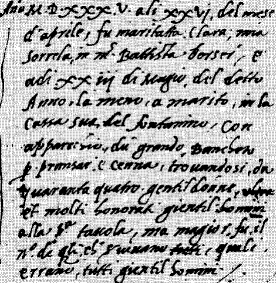 Año M D XXX V. ali XXVI, del mese
d'aprile, fu maritata Clara, mia
sorella, in m.r Battista borsei, e
adi XX iij di Magio, del detto
Anno, la meno, a marito, in la
Cassa sua del fontanino, Con
apparechio, du grando, Bancheto
p pransar e Cerna, trouandosi, da
quaranta quatro, gentildonne,
et molti honorati gientil homini
alla p.a tauola, ma magior, fu, il
n.o de q.li ch' seruiano tutti, quali
errano, tutti gientil homini